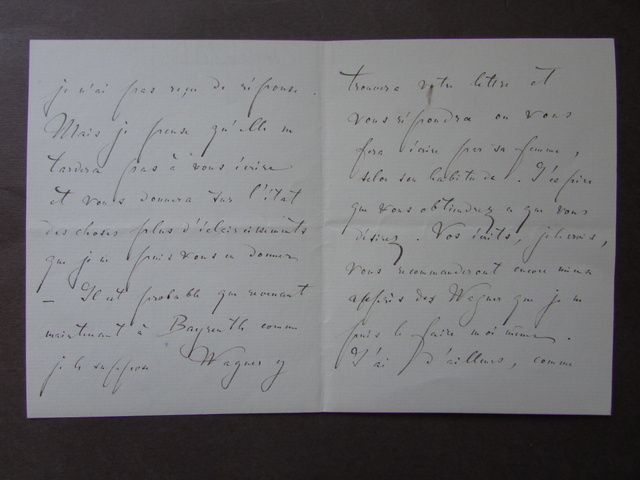 je n'ai pas reçu de réponse.
Mais je pense qu'elle ne
tardera pas à vous écrire
et vous donnera sur l'état
des choses plus d'éclaircissements
que je ne puis vous en donner.
— Il est probable que revenant
maintenant à Bayreuth comme
je le suppose Wagner y
trouvera votre lettre et
vous répondra ou vous
fera écrire par sa femme,
selon son habitude. J'espère
que vous obtiendrez ce que vous
désirez. Vos écrits, je le crois,
vous recommanderont encore mieux
auprès des Wagner que je ne
puis le faire moi même.
J'ai d'ailleurs, comme